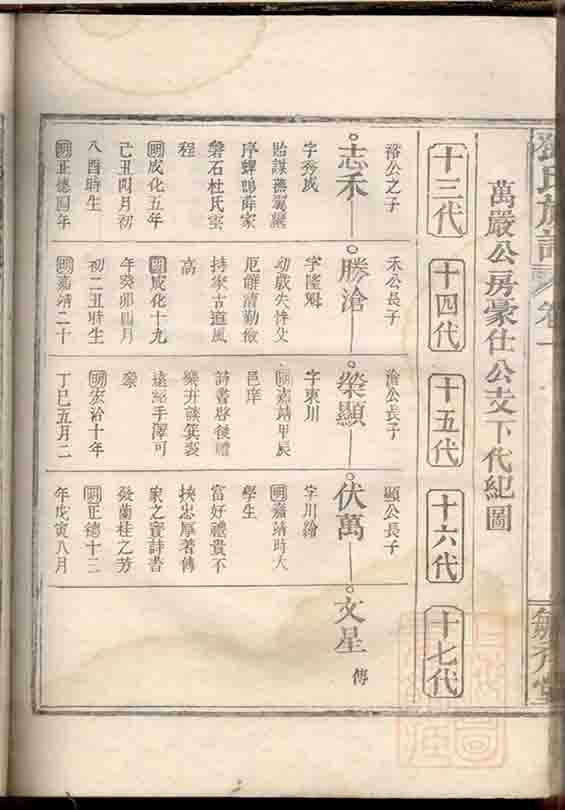 氏族譜 卷一
萬嚴公房豪仕公支下代紀圖
十三代
十四代
十五代
十六代
十七代
裕公之子
志禾
字秀成
貽謀燕翼
磐石杜氏雲
程
明成化五年
己丑四月初
八酉時生
明正德四年
禾公長子
勝滄
字隆魁
幼歲失怙父
厄能清勤儉
持家古道風
高
明成化十九
年癸卯四月
初二丑時生
明嘉靖二十
滄公長子
榮顯
字東川
明嘉靖甲辰
邑庠
詩書啓後禮
樂開謨箕裘
遠紹手澤可
明宏治十年
丁巳五月二
顯公長子
伏萬
字川繪
明嘉靖時大
學生
富好禮貴不
挾忠厚著傳
家之寶詩書
發蘭桂之芳
明正德十三
年戊寅八月
文星
傳